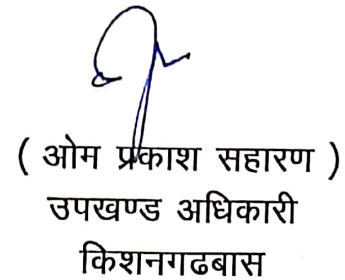 ( ओम प्रकाश सहारण )
उपखण्ड अधिकारी
किशनगढबास